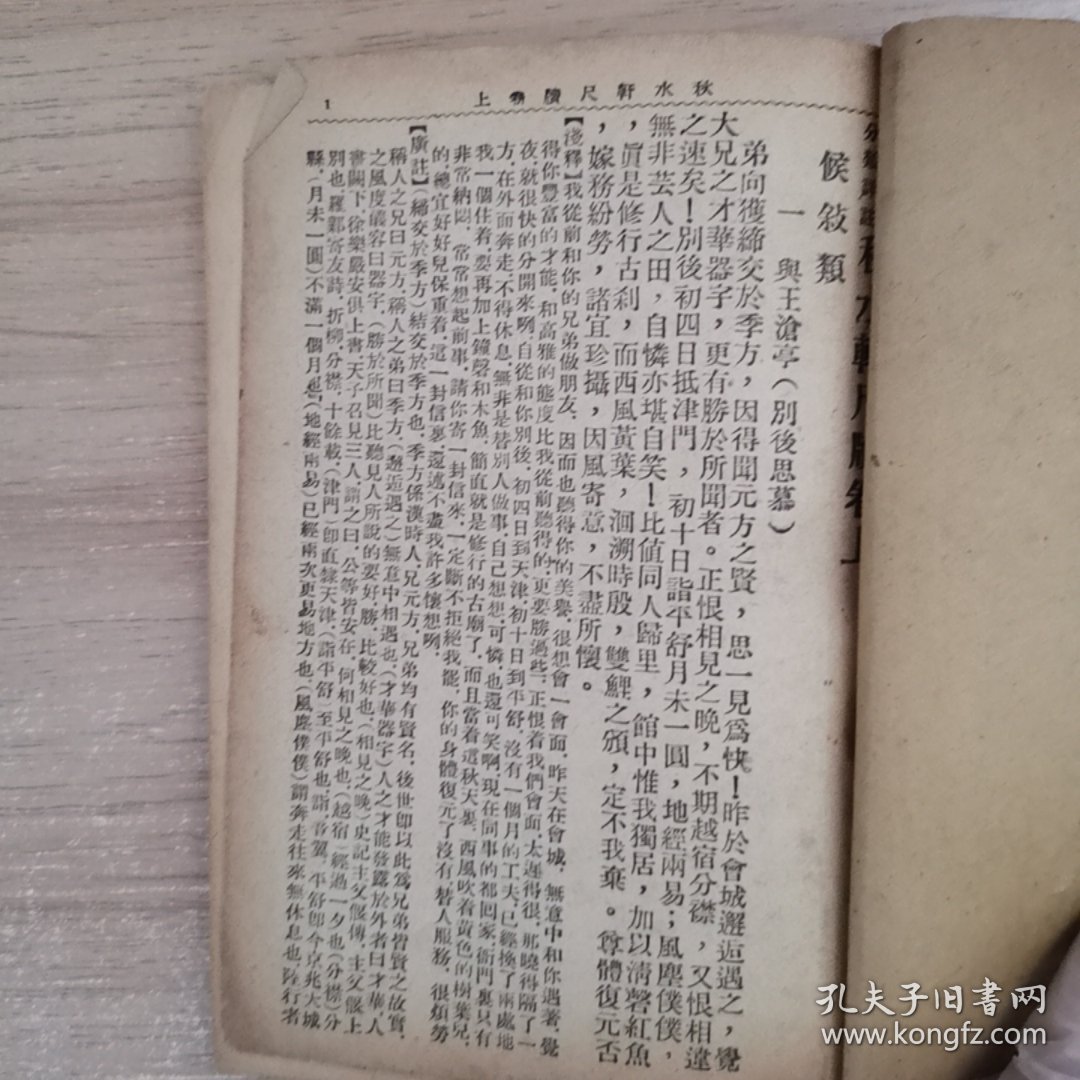 秋水軒尺牘卷上
1
候敍類
一 與王滄亭（別後思慕）
弟向獲締交於季方，因得聞元方之賢，思一見爲快！昨於會城邂逅遇之，覺
大兄之才華器宇，更有勝於所聞者。正恨相見之晚，不期越宿分襟，又恨相違
之速矣！別後初四日抵津門，初十日詣平舒月未一圓，地經兩易；風塵僕僕，
無非芸人之田，自憐亦堪自笑！比値同人歸里，館中惟我獨居，加以淸磬紅魚
，眞是修行古刹，而西風黃葉，洄溯時殷，雙鯉之頒，定不我棄。尊體復元否
，嫁務紛勞，諸宜珍攝，因風寄意，不盡所懷。
【淺釋】我從前和你的兄弟做朋友，因而也聽得你的美譽，很想會一會面，昨天在會城，無意中和你遇著，覺
得你豐富的才能，和高雅的態度比我從前聽得的，更要勝過些，正恨着我們會面，太遲得很，那曉得隔了一
夜，就很快的分開來咧，自從和你別後，初四日到天津，初十日到平舒，沒有一個月的工夫，已經換了兩處地
方，在外面奔走，不得休息，無非是替別人做事，自己想想，可憐，也還可笑啊，現在同事的都回家，衙門裏只有
我一個住着，要再加上鐘磬和木魚，簡直就是修行的古廟了，而且當着這秋天裏，西風吹着黃色的樹葉兒，
非常納悶，常常想起前事，請你寄一封信來，一定斷不拒絕我罷，你的身體復元了沒有，替人服務，很煩勞
的，總宜好好兒保重着，這一封信裏，還述不盡我許多懷想咧，
【廣註】（締交於季方）結交於季方也，季方係漢時人，兄元方，兄弟均有賢名，後世卽以此爲兄弟皆賢之故實，
稱人之兄曰元方，稱人之弟曰季方，（邂逅遇之）無意中相遇也，（才華器宇）人之才能發露於外者曰才華，人
之風度儀容曰器宇，（勝於所聞）比聽見人所說的要好，勝，比較好也，（相見之晚）史記主父偃傳，主父偃上
書闕下，徐樂嚴安俱上書，天子召見三人，謂之曰，公等皆安在，何相見之晚也，（越宿）經過一夕也（分襟）分
別也，羅鄴寄友詩，折柳，分襟，十餘載，（津門）卽直隸天津，（詣平舒）至平舒也，詣，音羿，平舒卽今京兆大城
縣，月未一圓）不滿一個月也（地經兩易）已經兩次更易地方也，（風塵僕僕）謂奔走往來無休息也，陸行者
孔夫子旧书网
www.kongfz.com